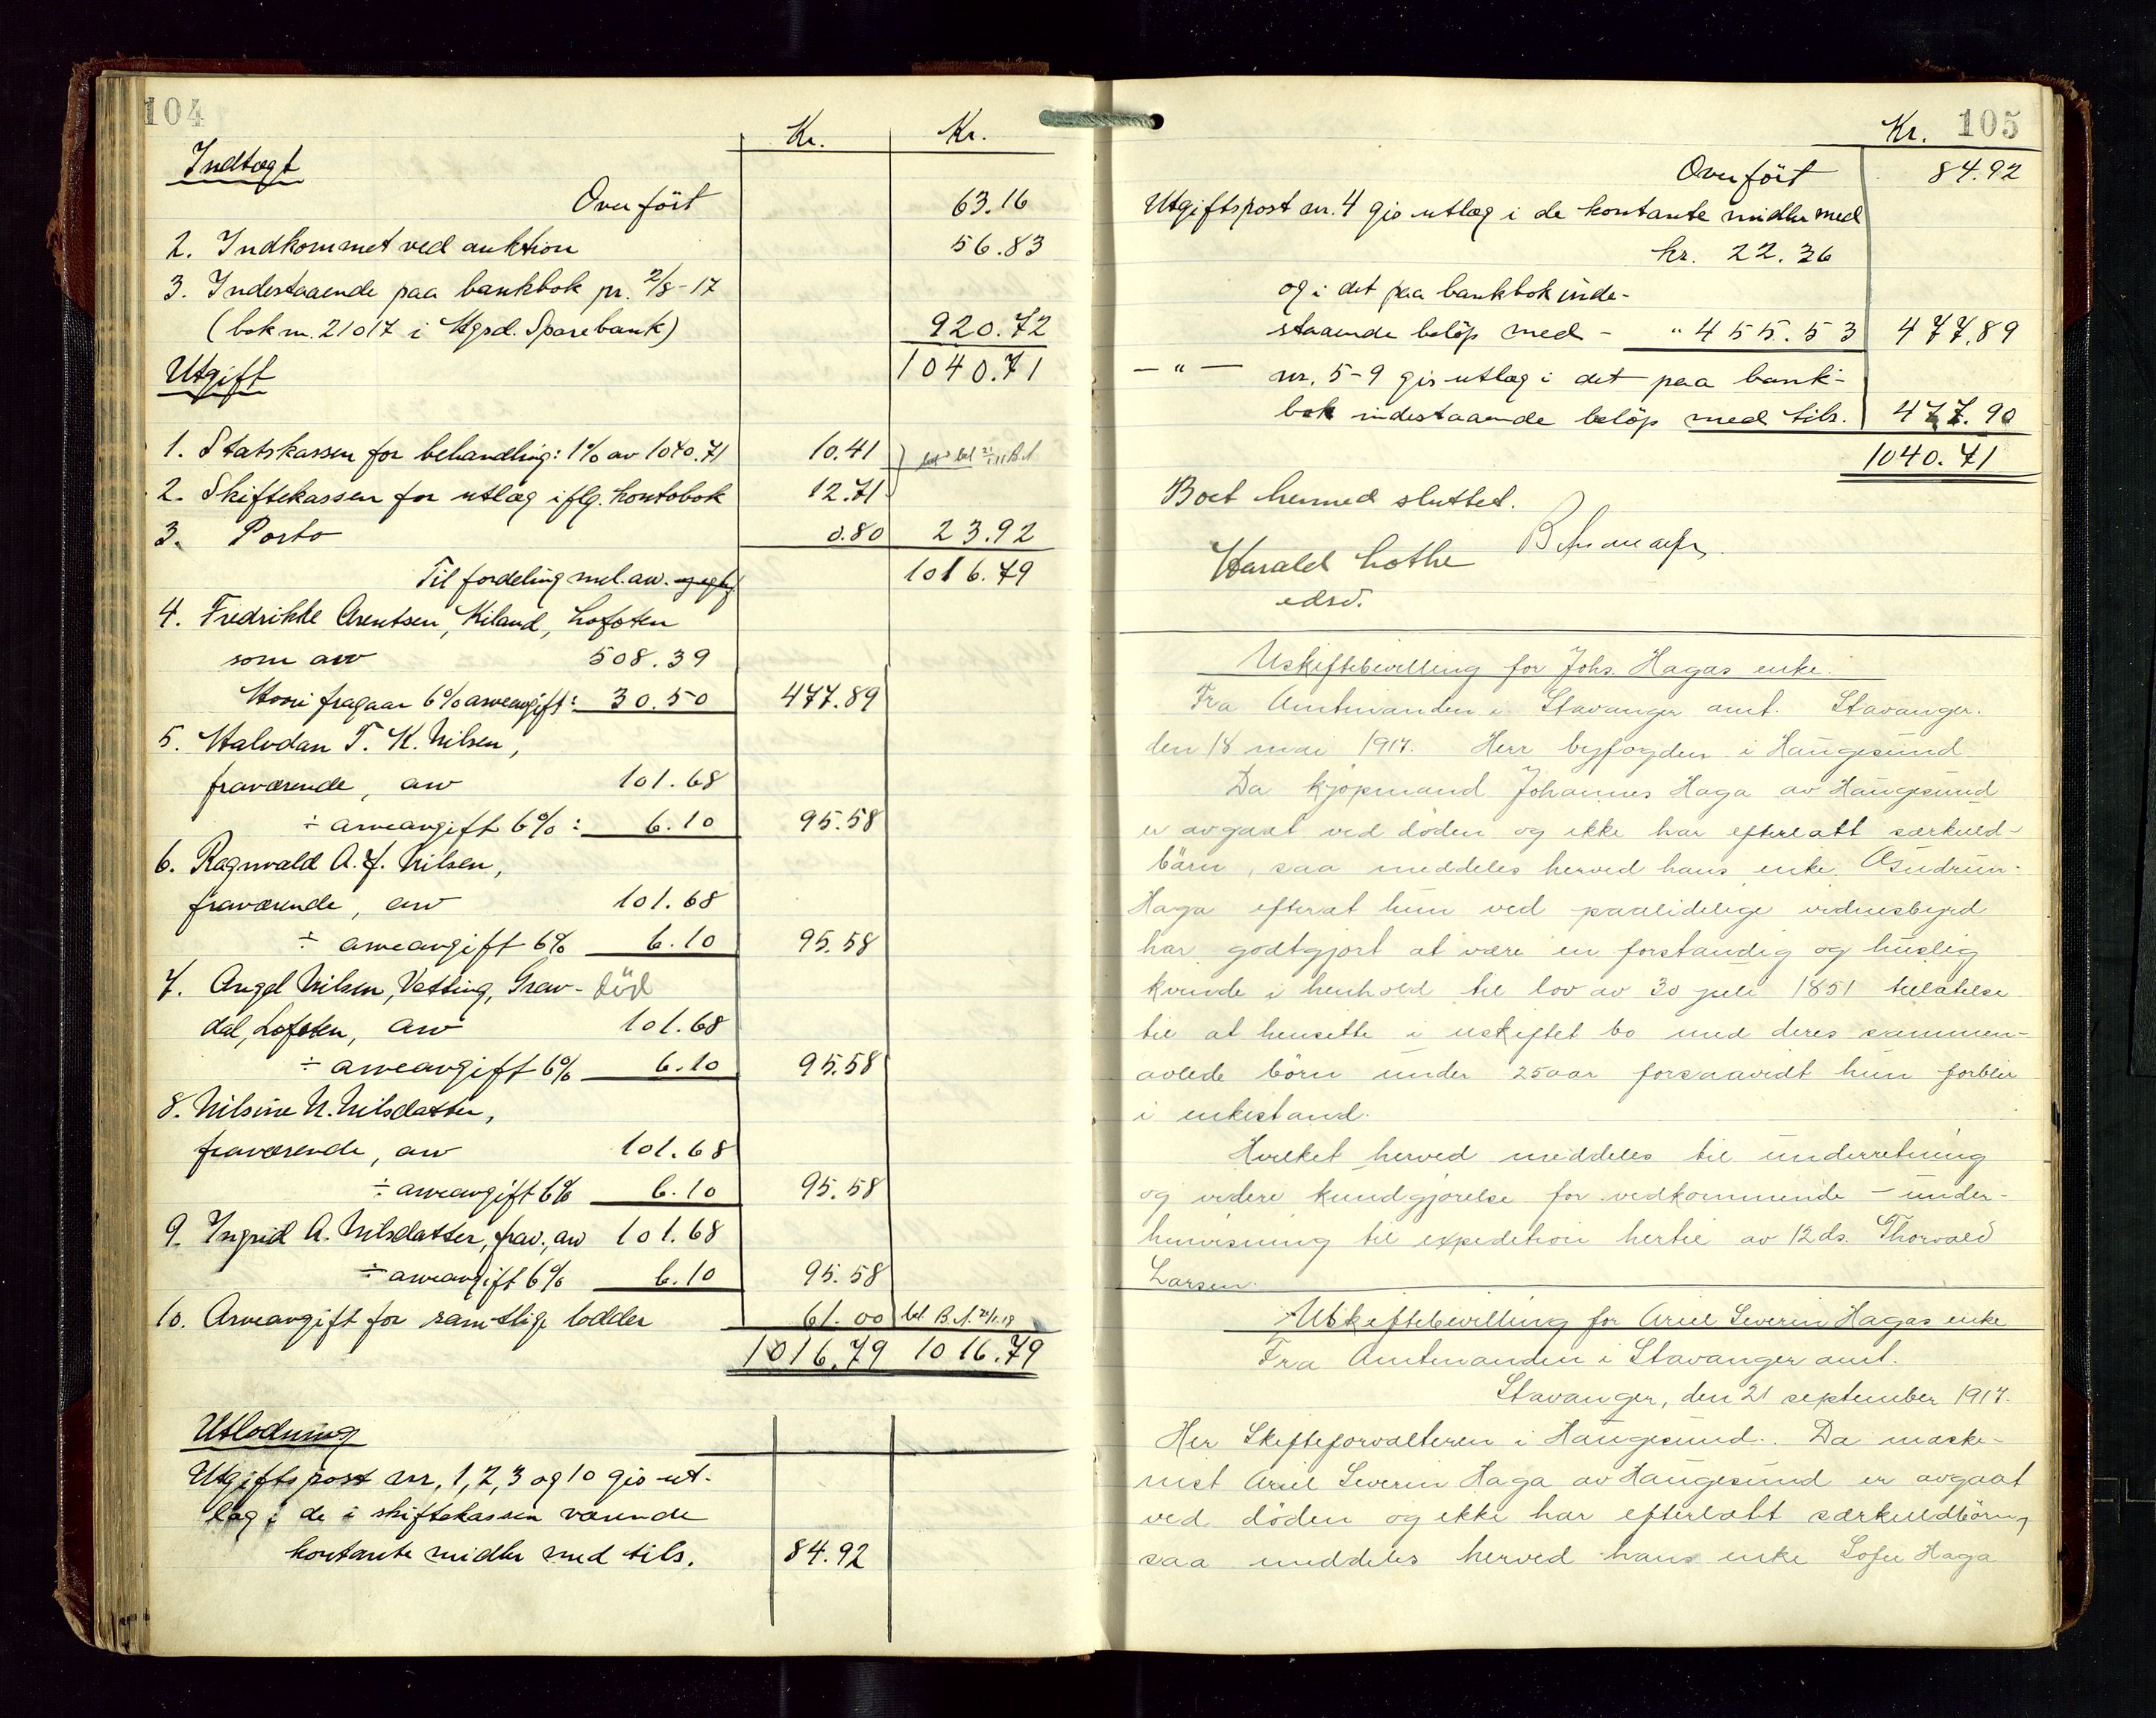 104
Kr. Kr.
Indtægt
Overført 63.16
2. Indkommet ved auktion 56.83
3. Indestaaende paa bankbok pr. 2/8-17
(bok nr. 21017 i Hgsd. Sparebank) 920.72
1040.71
Utgift
1. Statskassen for behandling: 1% av 1040.71 10.41
2. Skiftekassen for utlæg iflg. kontobok 12.71
3. Porto 0.80 23.92
Til fordeling mel. arv. 1016.79
4. Fredrikke Arentsen, Kiland, Lofoten
som arv 508.39
Hvori fragaar 6% arveavgift: 30.50 477.89
5. Halvdan T. K. Nilsen,
fraværende, arv 101.68
÷ arveavgift 6%: 6.10 95.58
6. Ragnvald A. J. Nilsen,
fraværende, arv 101.68
÷ arveavgift 6% 6.10 95.58
7. Angel Nilsen, Vetting, Grav- död
dal, Lofoten, arv 101.68
÷ arveavgift 6% 6.10 95.58
8. Nilsine N. Nilsdatter,
fraværende, arv 101.68
÷ arveavgift 6% 6.10 95.58
9. Ingrid A. Nilsdatter, frav., arv 101.68
÷ arveavgift 6% 6.10 95.58
10. Arveavgift for samtlige lodder 61.00 bet. B.A. 21/1.18
1016.79 1016.79
Utlodning
Utgiftspost nr, 1, 2, 3 og 10 gis ut-
læg i de i skiftekassen værende
kontante midler med tils. 84.92
105
Kr.
Overført 84.92
Utgiftspost nr. 4 gis utlæg i de kontante midler med
kr. 22.36
og i det paa bankbok inde-
staaende beløp med - " 455.53 477.89
— " — nr. 5-9 gis utlæg i det paa bank-
bok indestaaende beløp med tils. 477.90
1040.71
Boet hermed sluttet.
Harald Lothe
edsv.
Uskiftebevilling for Johs. Hagas enke.
Fra Amtmanden i Stavanger amt. Stavanger.
den 18 mai 1917. Herr byfogden i Haugesund
Da kjøpmand Johannes Haga av Haugesund
er avgaat ved døden og ikke har efterlatt særkuld-
børn, saa meddeles herved hans enke, Gudrun
Haga efterat hun ved paalidelige vidnesbyrd
har godtgjort at være en forstandig og huslig
kvinde i henhold til lov av 30 juli 1851 tillatelse
til at hensitte i uskiftet bo med deres sammen-
avlede børn under 25 aar forsaavidt hun forblir
i enkestand.
Hvilket herved meddeles til underretning
og videre kundgjørelse for vedkommende – under-
henvisning til expedition hertil av 12 ds. Thorvald
Larsen.
Uskiftebevilling for Ariel Severin Hagas enke
Fra Amtmanden i Stavanger amt.
Stavanger, den 21 september 1917.
Her Skifteforvalteren i Haugesund. Da maski-
nist Ariel Severin Haga av Haugesund er avgaat
ved døden og ikke har efterlatt særkuldbørn,
saa meddeles herved hans enke Sofie Haga